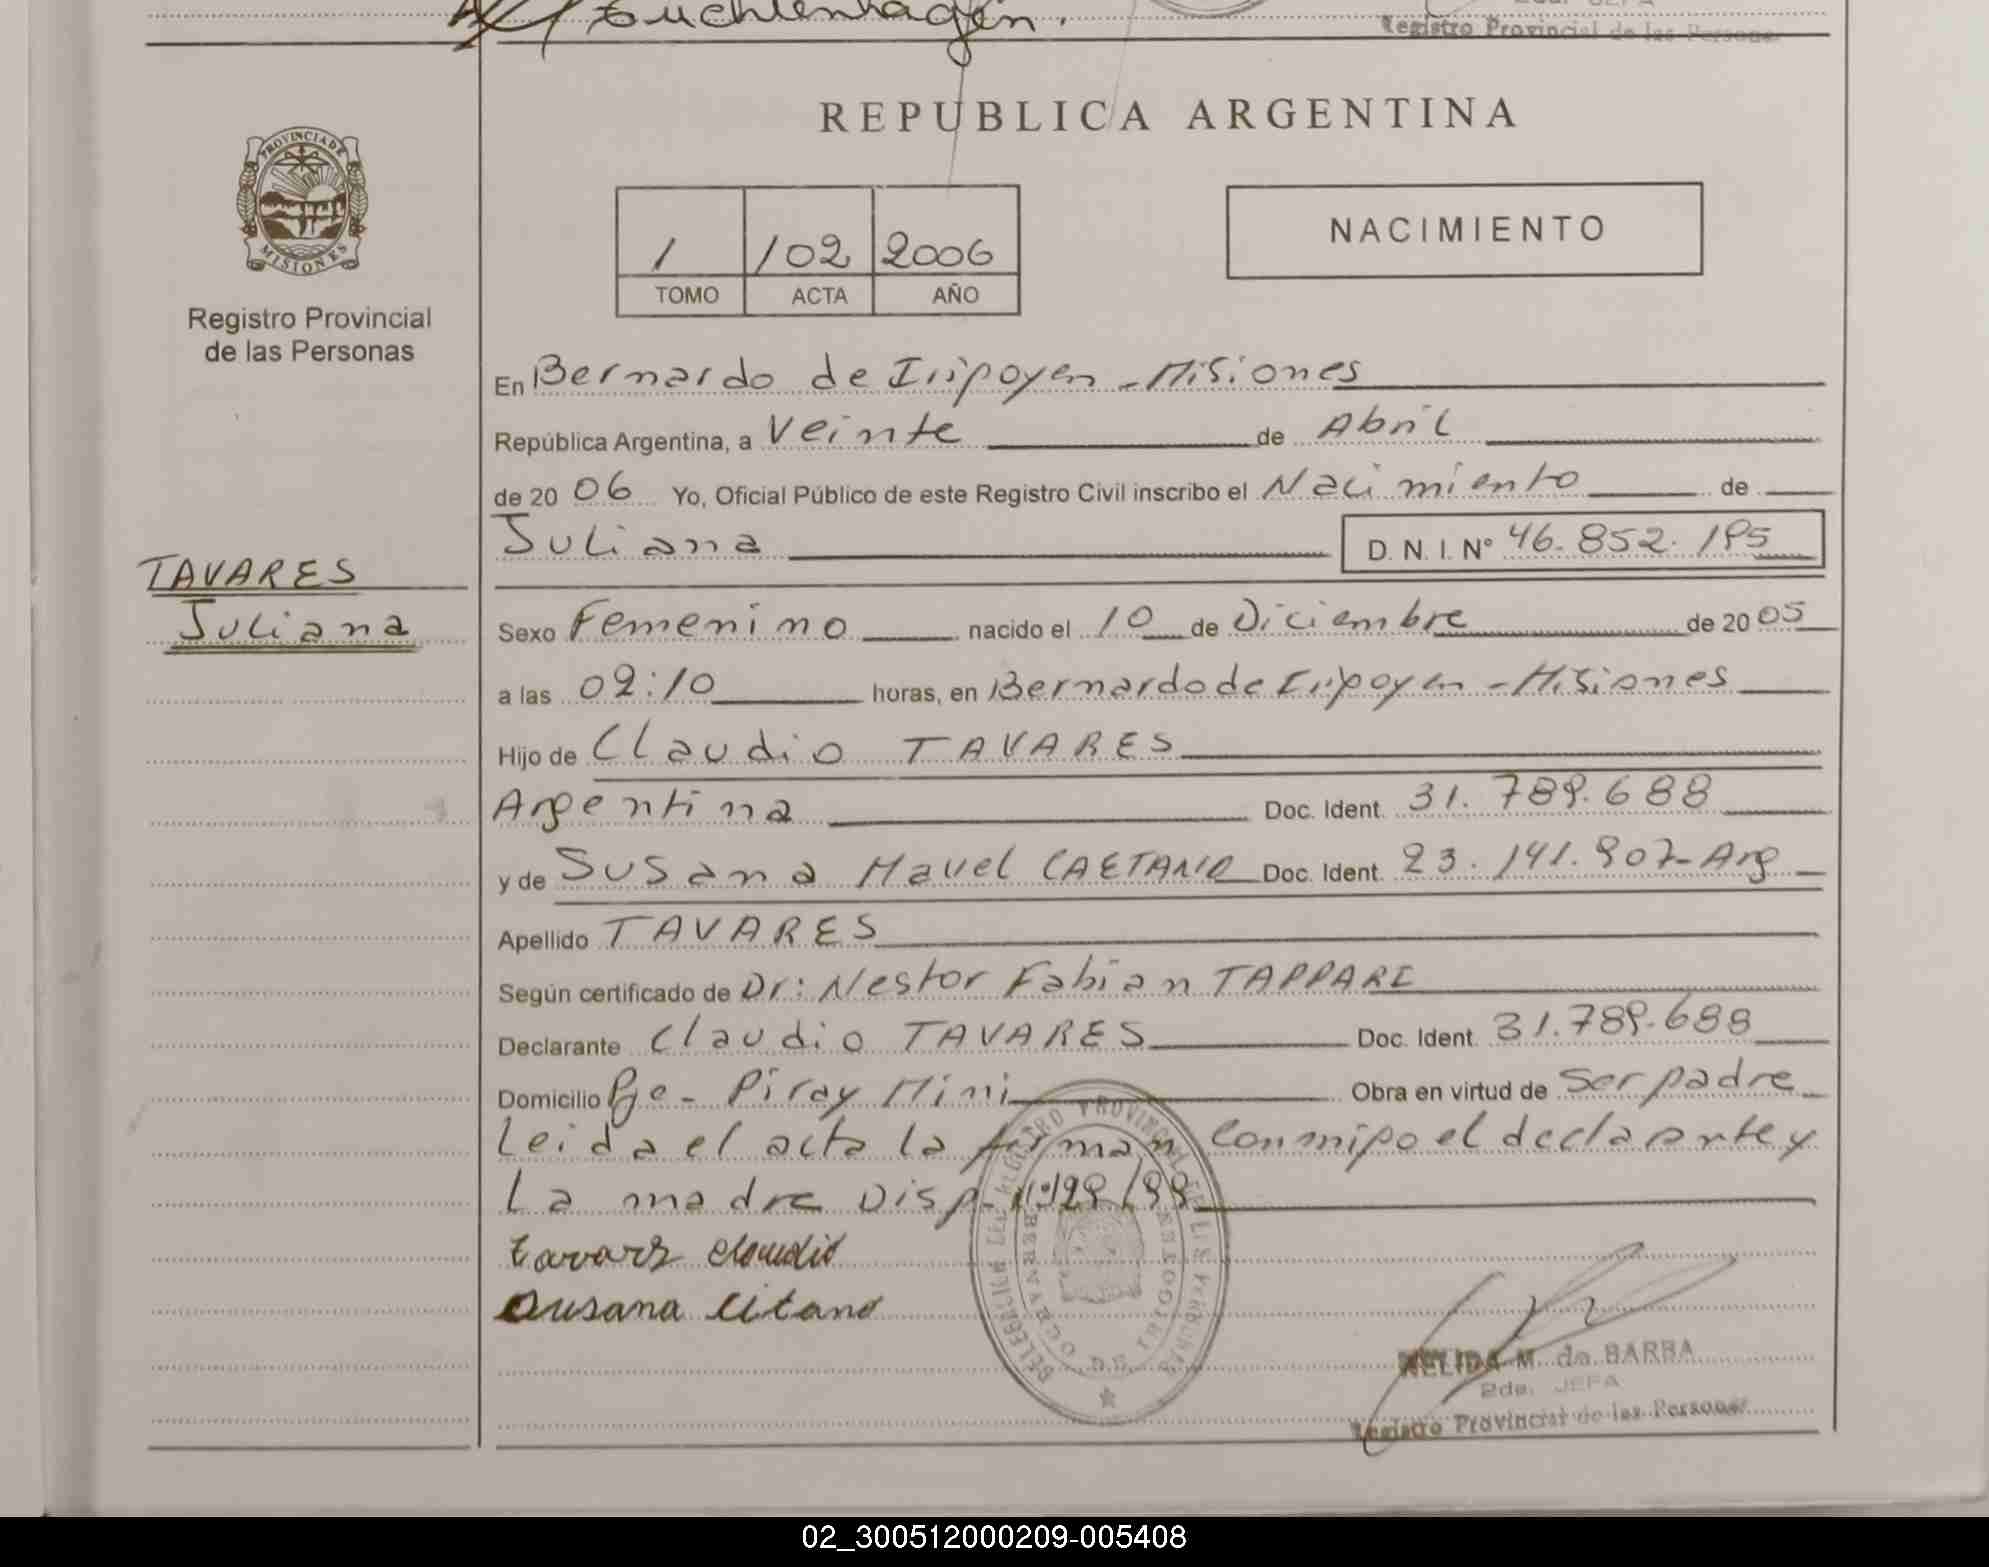 Euchlenhagen.
Registro Provincial de las Personas
REPUBLICA ARGENTINA
PROVINCIA DE
MISIONES
Registro Provincial
de las Personas
1 102 2006
TOMO ACTA AÑO
NACIMIENTO
En Bernardo de Irigoyen - Misiones
República Argentina, a Veinte de Abril
de 20 06 Yo, Oficial Público de este Registro Civil inscribo el Nacimiento de
Juliana D. N. I. Nº 46.852.195
TAVARES
Juliana
Sexo Femenino nacido el 10 de Diciembre de 20 05
a las 02:10 horas, en Bernardo de Irigoyen - Misiones
Hijo de Claudio TAVARES
Argentina Doc. Ident. 31.789.688
y de Susana Mavel CAETANO Doc. Ident. 23.141.907-Arg
Apellido TAVARES
Según certificado de Dr: Nestor Fabian TAPPARI
Declarante Claudio TAVARES Doc. Ident. 31.789.688
Domicilio Pje- Piray Mini Obra en virtud de Ser padre
Leida el acta la firman conmigo el declarante y
La madre Disp nº 129/99
tavarez claudio
Susana Citano
NELIDA M. de BARBA
2da. JEFA
Registro Provincial de las Personas
02_300512000209-005408